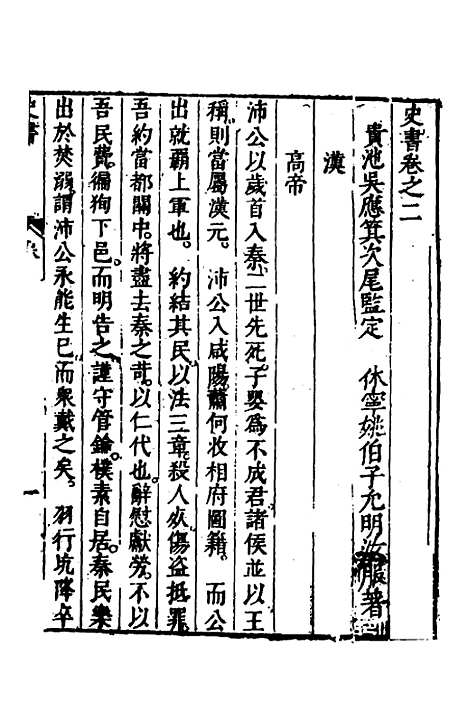 史書卷之二
貴池吳應箕次尾監定　休寧姚伯子允明汝服著
漢
高帝
沛公以歲首入秦。二世先死。子嬰為不成君諸侯並以王
稱。則當屬漢元。　沛公入咸陽。蕭何收相府圖籍。　而公
出就覇上軍也。　約結其民以法三章。殺人。傷盜抵罪。
吾約當都關中。將盡去秦之苛。以仁代也。辭慰獻勞。不以
吾民費。徧狥下邑。而明告之。謹守管鑰。樸素自居。秦民樂
出於焚溺。謂沛公永能生已而衆戴之矣。　羽行坑降卒
史書
一